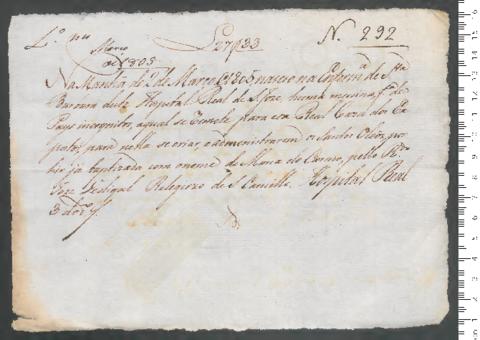 L.º nº
Março de 1805
L 27 f 33
N. 292
Na Manhã do 2 de Março de 1805 nasceo na Enferm.ª de S.ta
Barbara deste Hospital Real de S. Joze huma menina f.ª de
Pays incognitos, a qual se remete para essa Real Caza dos Ex
postos, para nella se criar, e admenistrarem os Santos Oleos, por
hir já baptizada com o nome de Maria do Carmo, pello R.do
Joze Religiozo de S. Camillo. Hospital Real
3 do d.º